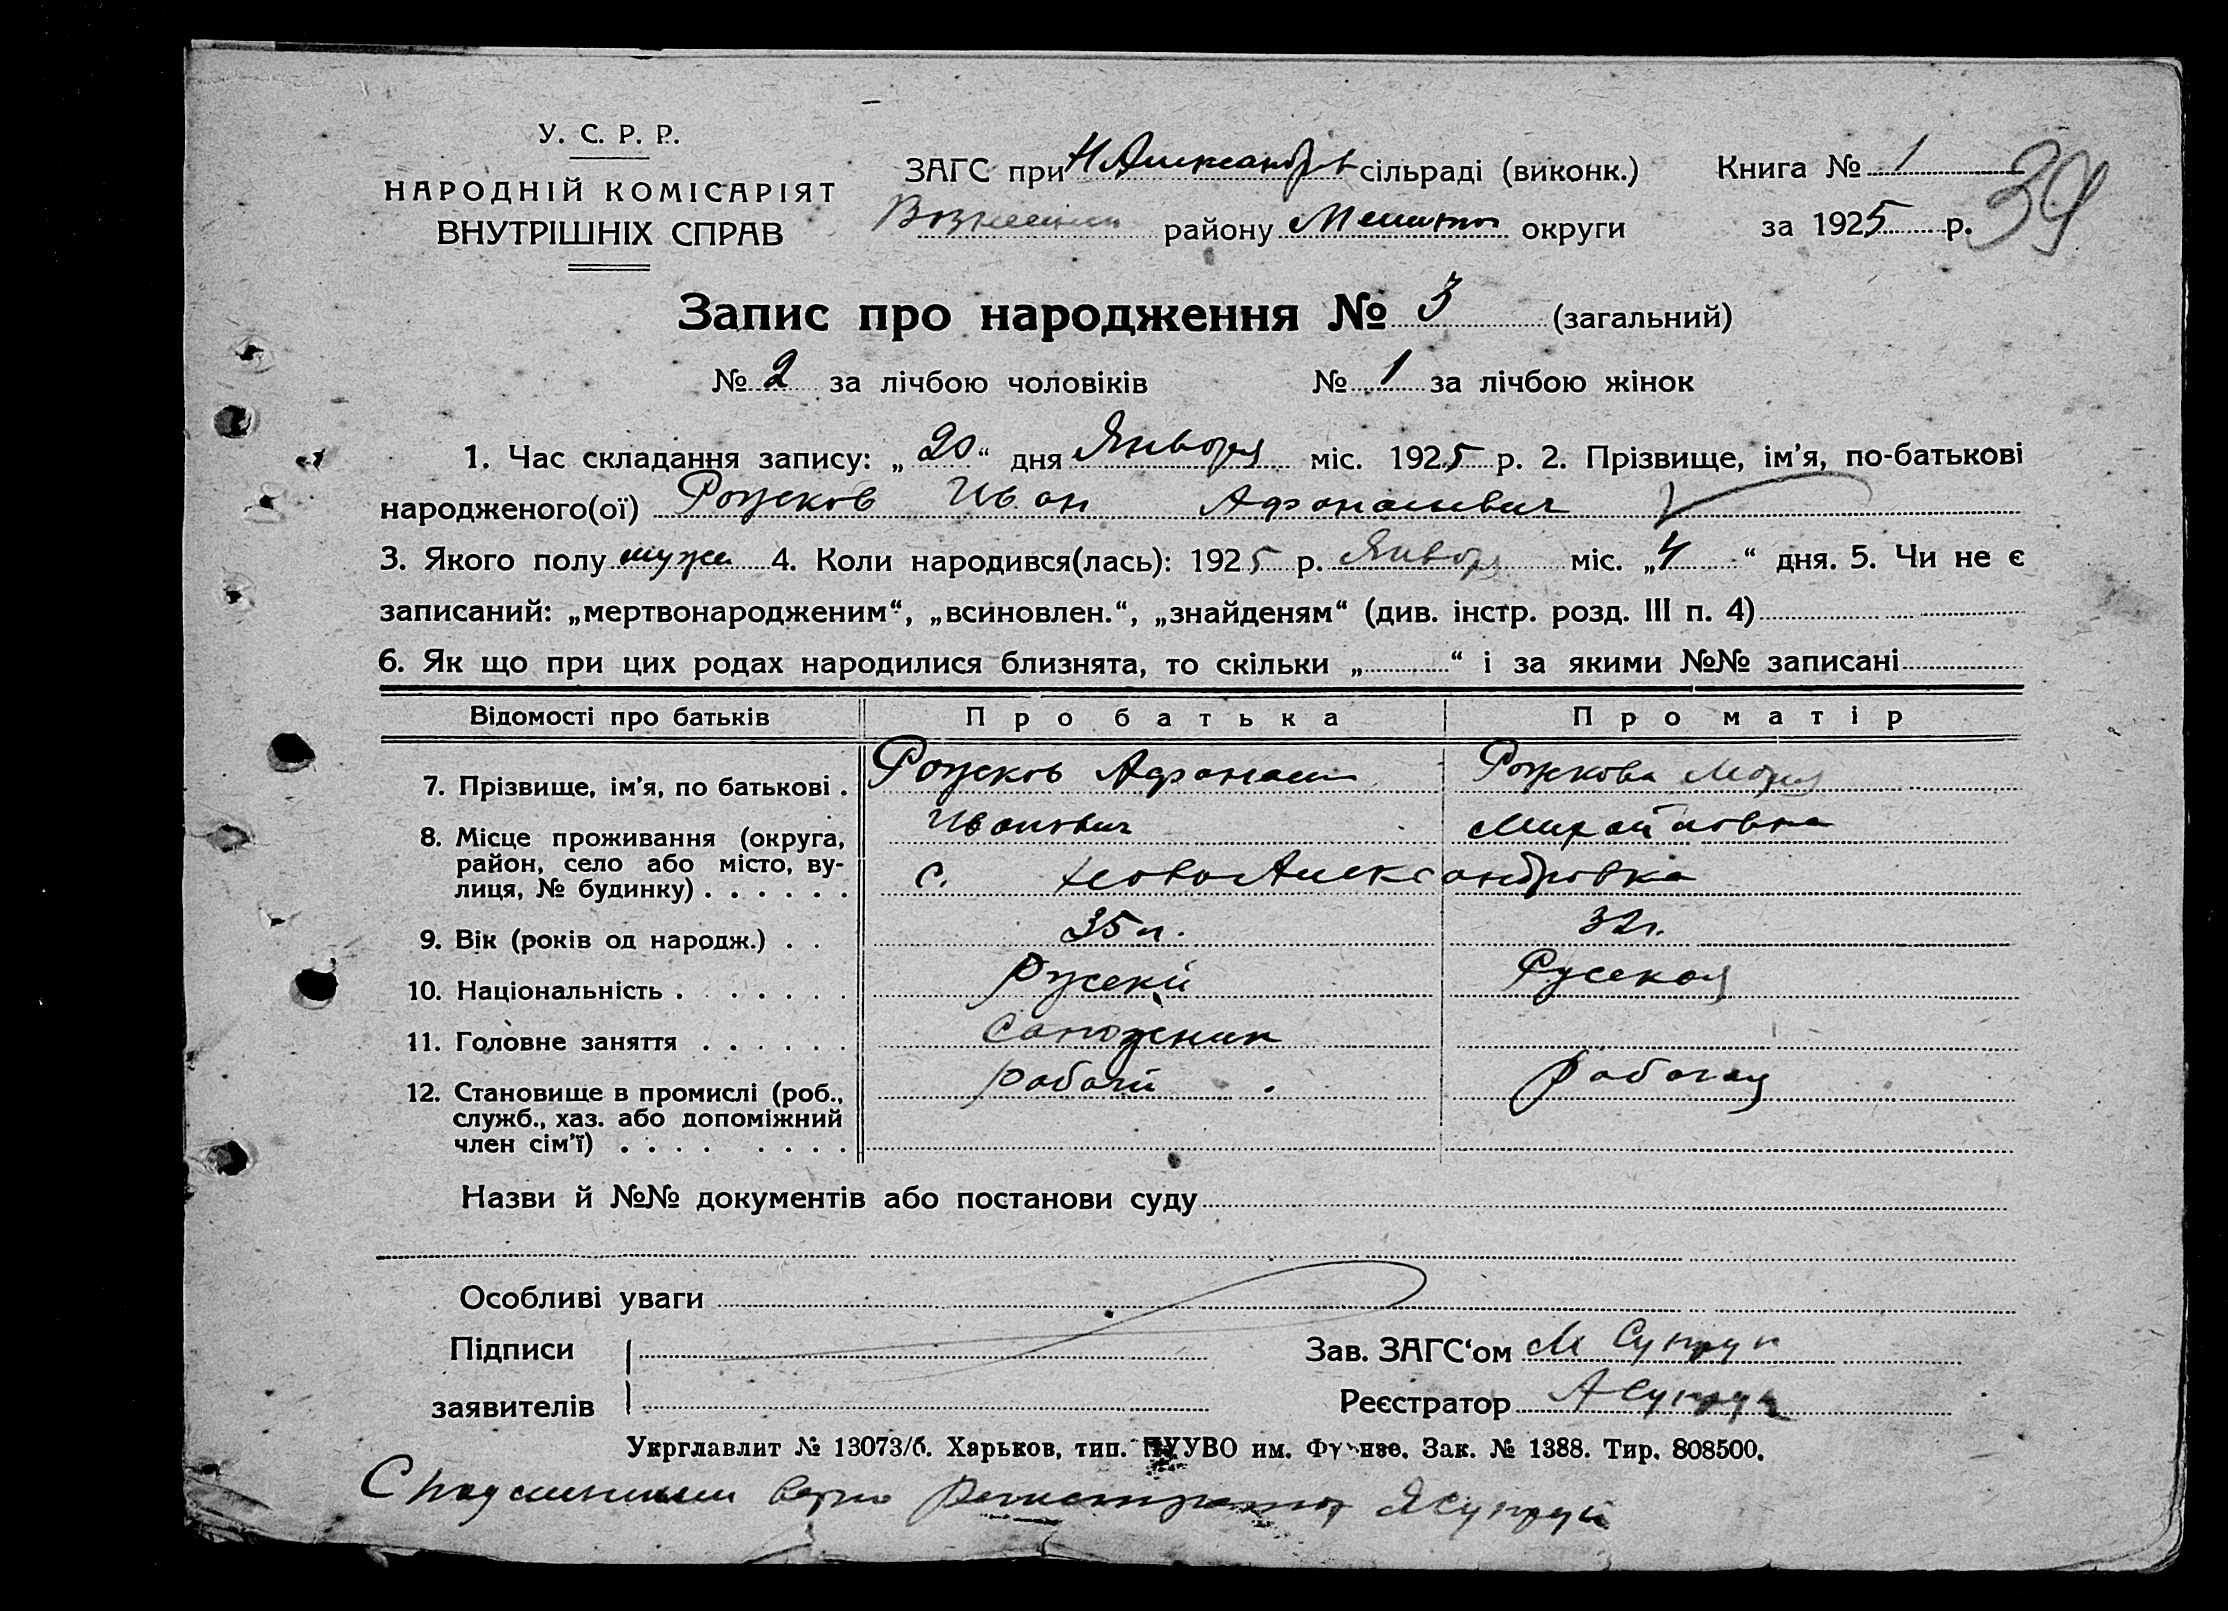 У. С. Р. Р.
НАРОДНІЙ КОМІСАРІЯТ
ВНУТРІШНІХ СПРАВ
ЗАГС при Н Александров сільраді (виконк.)
района Мелито округи
Книга № 1
за 1925 р.
39
Запис про народження № 3 (загальний)
№ 2 за лічбою чоловіків № 1 за лічбою жінок
1. Час складання запису: „20“ дня Января міс. 1925 р. 2. Прізвище, ім'я, по-батькові
народженого(ої) Рожков Иван Афонасиевич
3. Якого полу муж 4. Коли народився(лась): 1925 р. Январ міс. „4“ дня. 5. Чи не є
записаний: „мертвонародженим“, „всиновлен.“, „знайденям“ (див. інстр. розд. III п. 4)
6. Як що при цих родах народилися близнята, то скільки „ “ і за якими №№ записані
Відомості про батьків Про батька Про матір
7. Прізвище, ім'я, по батькові . Рожков Афонаси Рожкова Мария
Иванович Михайловна
8. Місце проживання (округа,
район, село або місто, ву-
лиця, № будинку) . . . . . . с. Ново Александровка
9. Вік (років од народж.) . . 35 л. 32 г.
10. Національність . . . . . . . Руский Руская
11. Головне заняття . . . . . . Сапожник
12. Становище в промислі (роб.,
служб., хаз. або допоміжний
член сім'ї) . . . . . . . . рабочи рабочая
Назви й №№ документів або постанови суду
Особливі уваги
Підписи
заявителів
Зав. ЗАГС'ом М Супрун
Реєстратор А Супрун
Укрглавлит № 13073/б. Харьков, тип. ПУУВО им. Фрунзе. Зак. № 1388. Тир. 808500.
С подлинным верно Регистратор